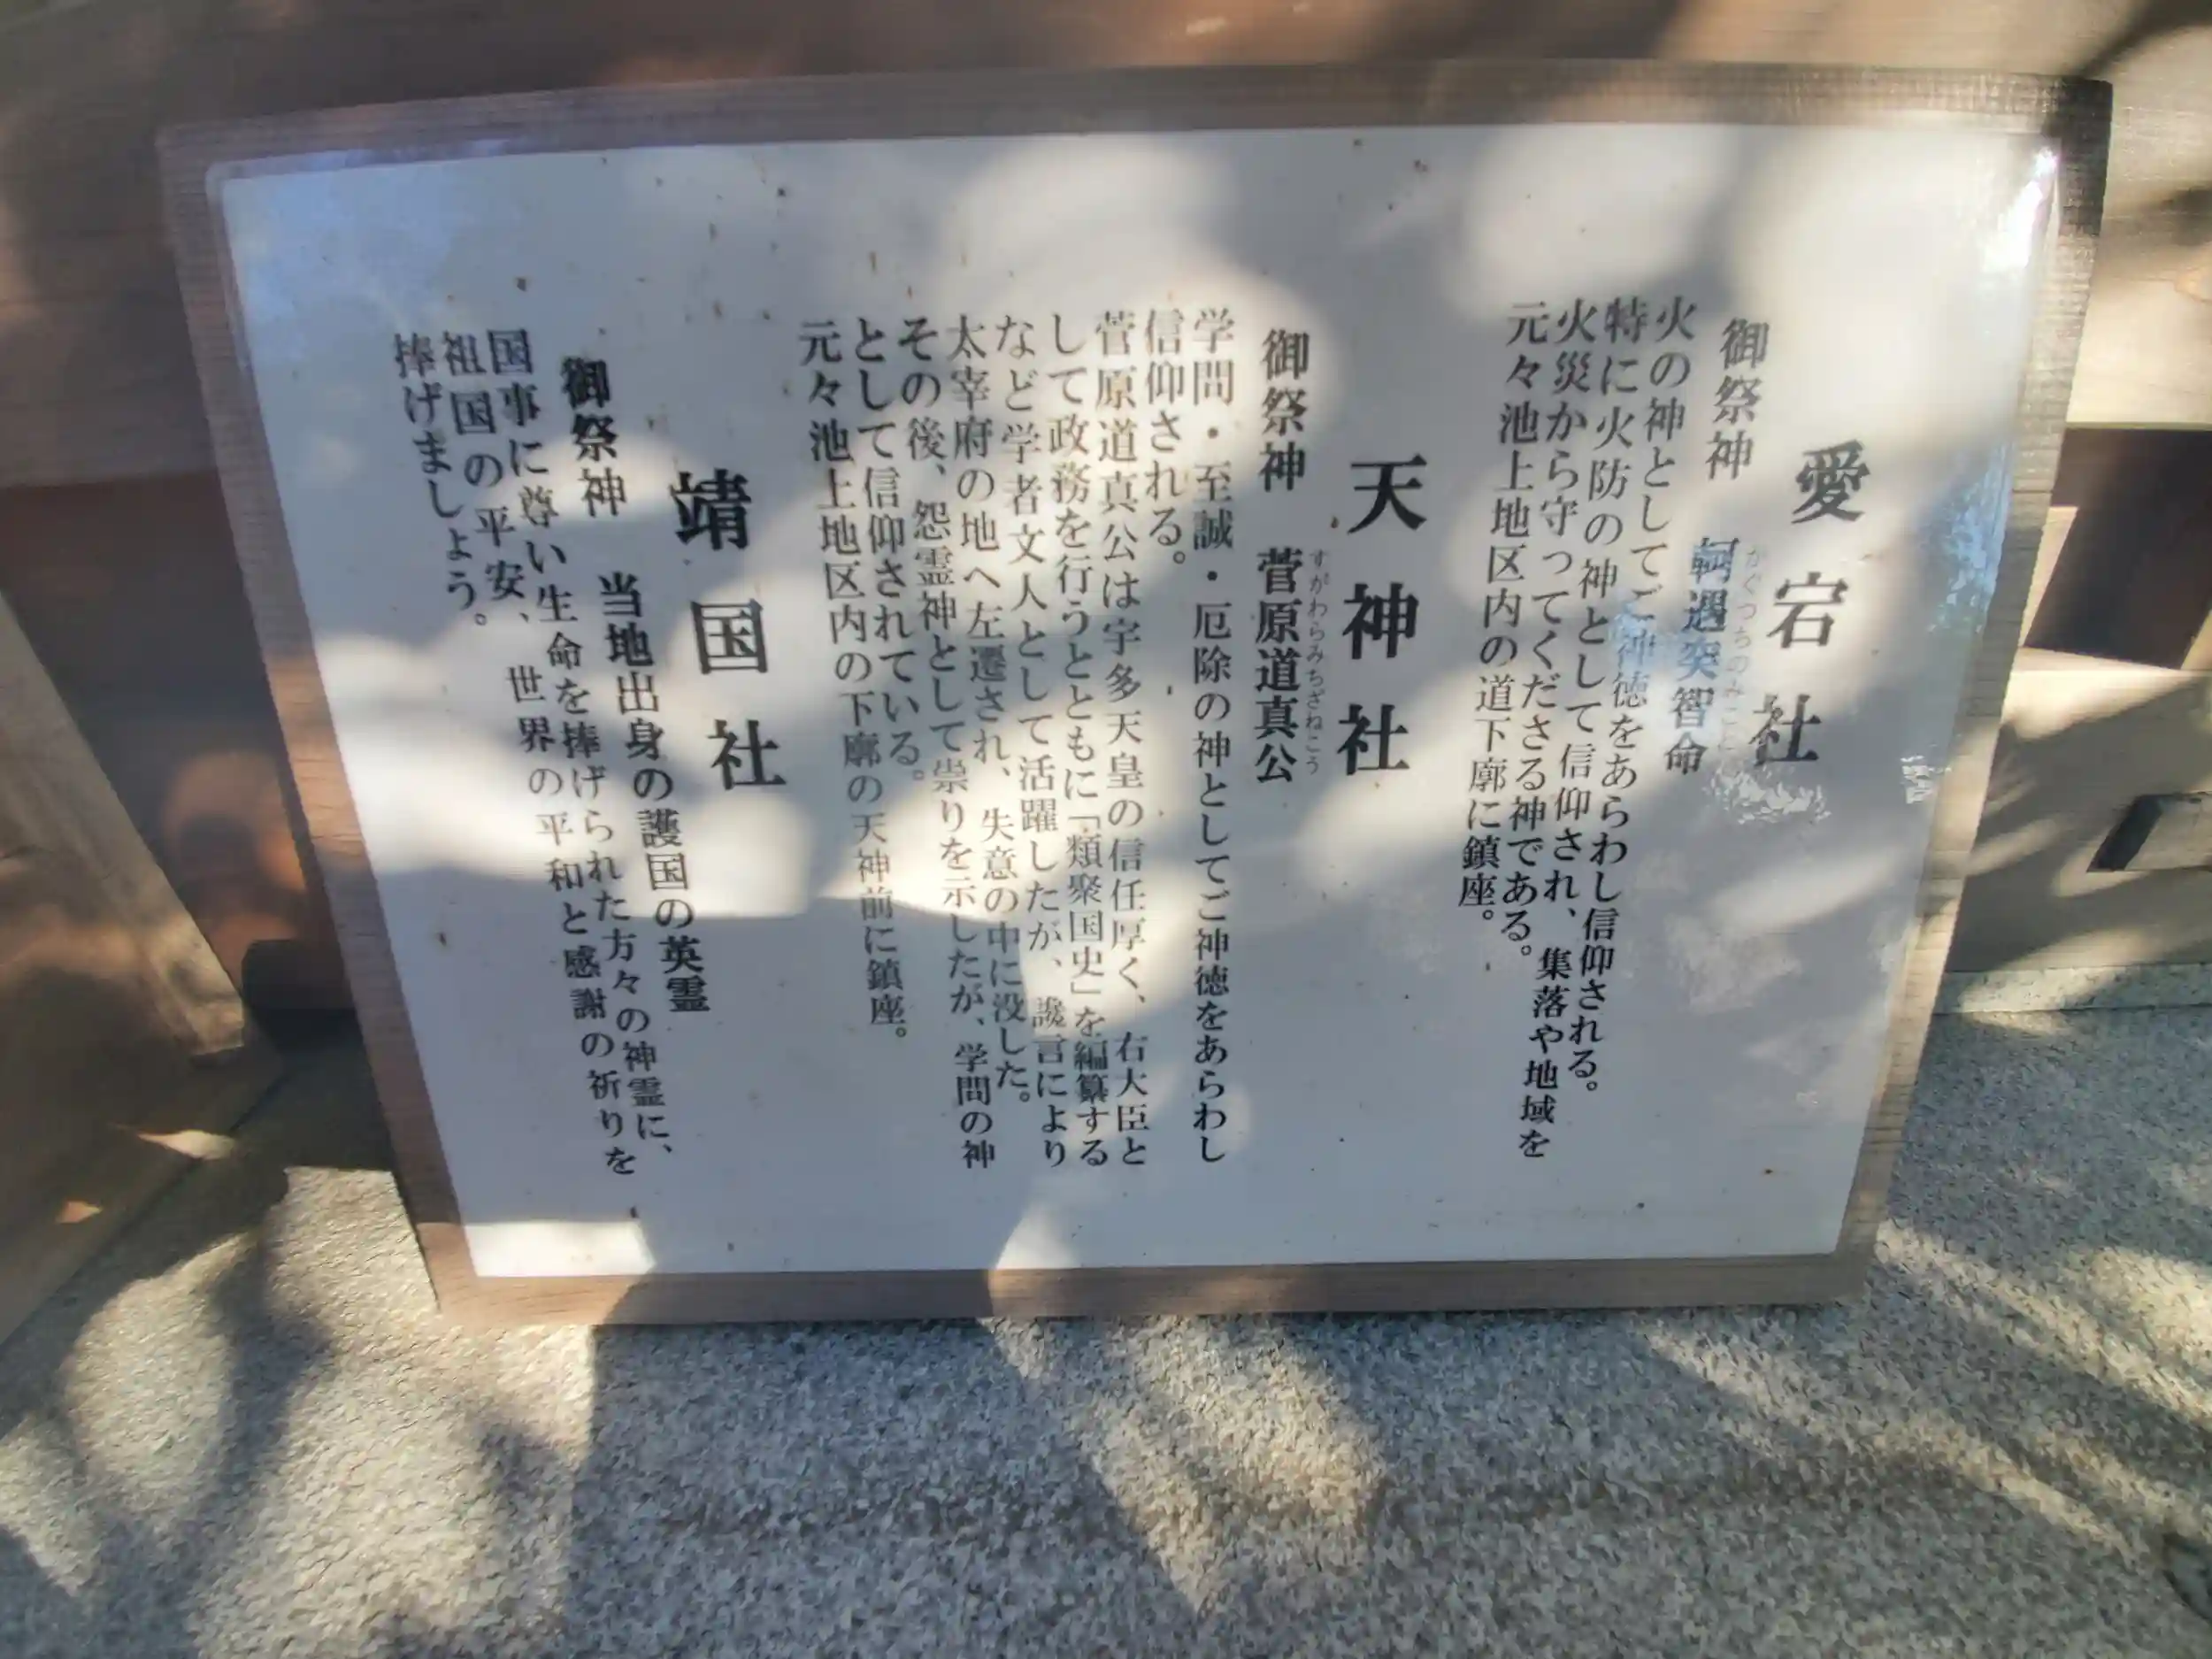 愛宕社
御祭神　軻遇突智命
かぐつちのみこと
火の神としてご神徳をあらわし信仰される。
特に火防の神として信仰され、集落や地域を
火災から守ってくださる神である。
元々池上地区内の道下廓に鎮座。
天神社
御祭神　菅原道真公
すがわらみちざねこう
学問・至誠・厄除の神としてご神徳をあらわし
信仰される。
菅原道真公は宇多天皇の信任厚く、右大臣と
して政務を行うとともに「類聚国史」を編纂する
など学者文人として活躍したが、讒言により
太宰府の地へ左遷され、失意の中に没した。
その後、怨霊神として祟りを示したが、学問の神
として信仰されている。
元々池上地区内の下廓の天神前に鎮座。
靖国社
御祭神　当地出身の護国の英霊
国事に尊い生命を捧げられた方々の神霊に、
祖国の平安、世界の平和と感謝の祈りを
捧げましょう。